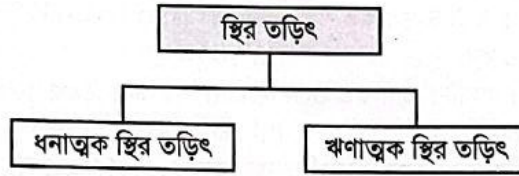 স্থির তড়িৎ
ধনাত্মক স্থির তড়িৎ
ঋণাত্মক স্থির তড়িৎ